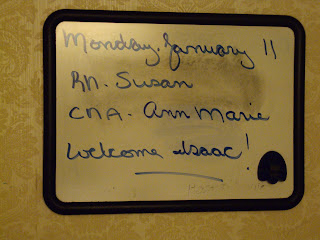 Monday, January 11
RN. Susan
CNA. Ann Marie
Welcome Isaac!